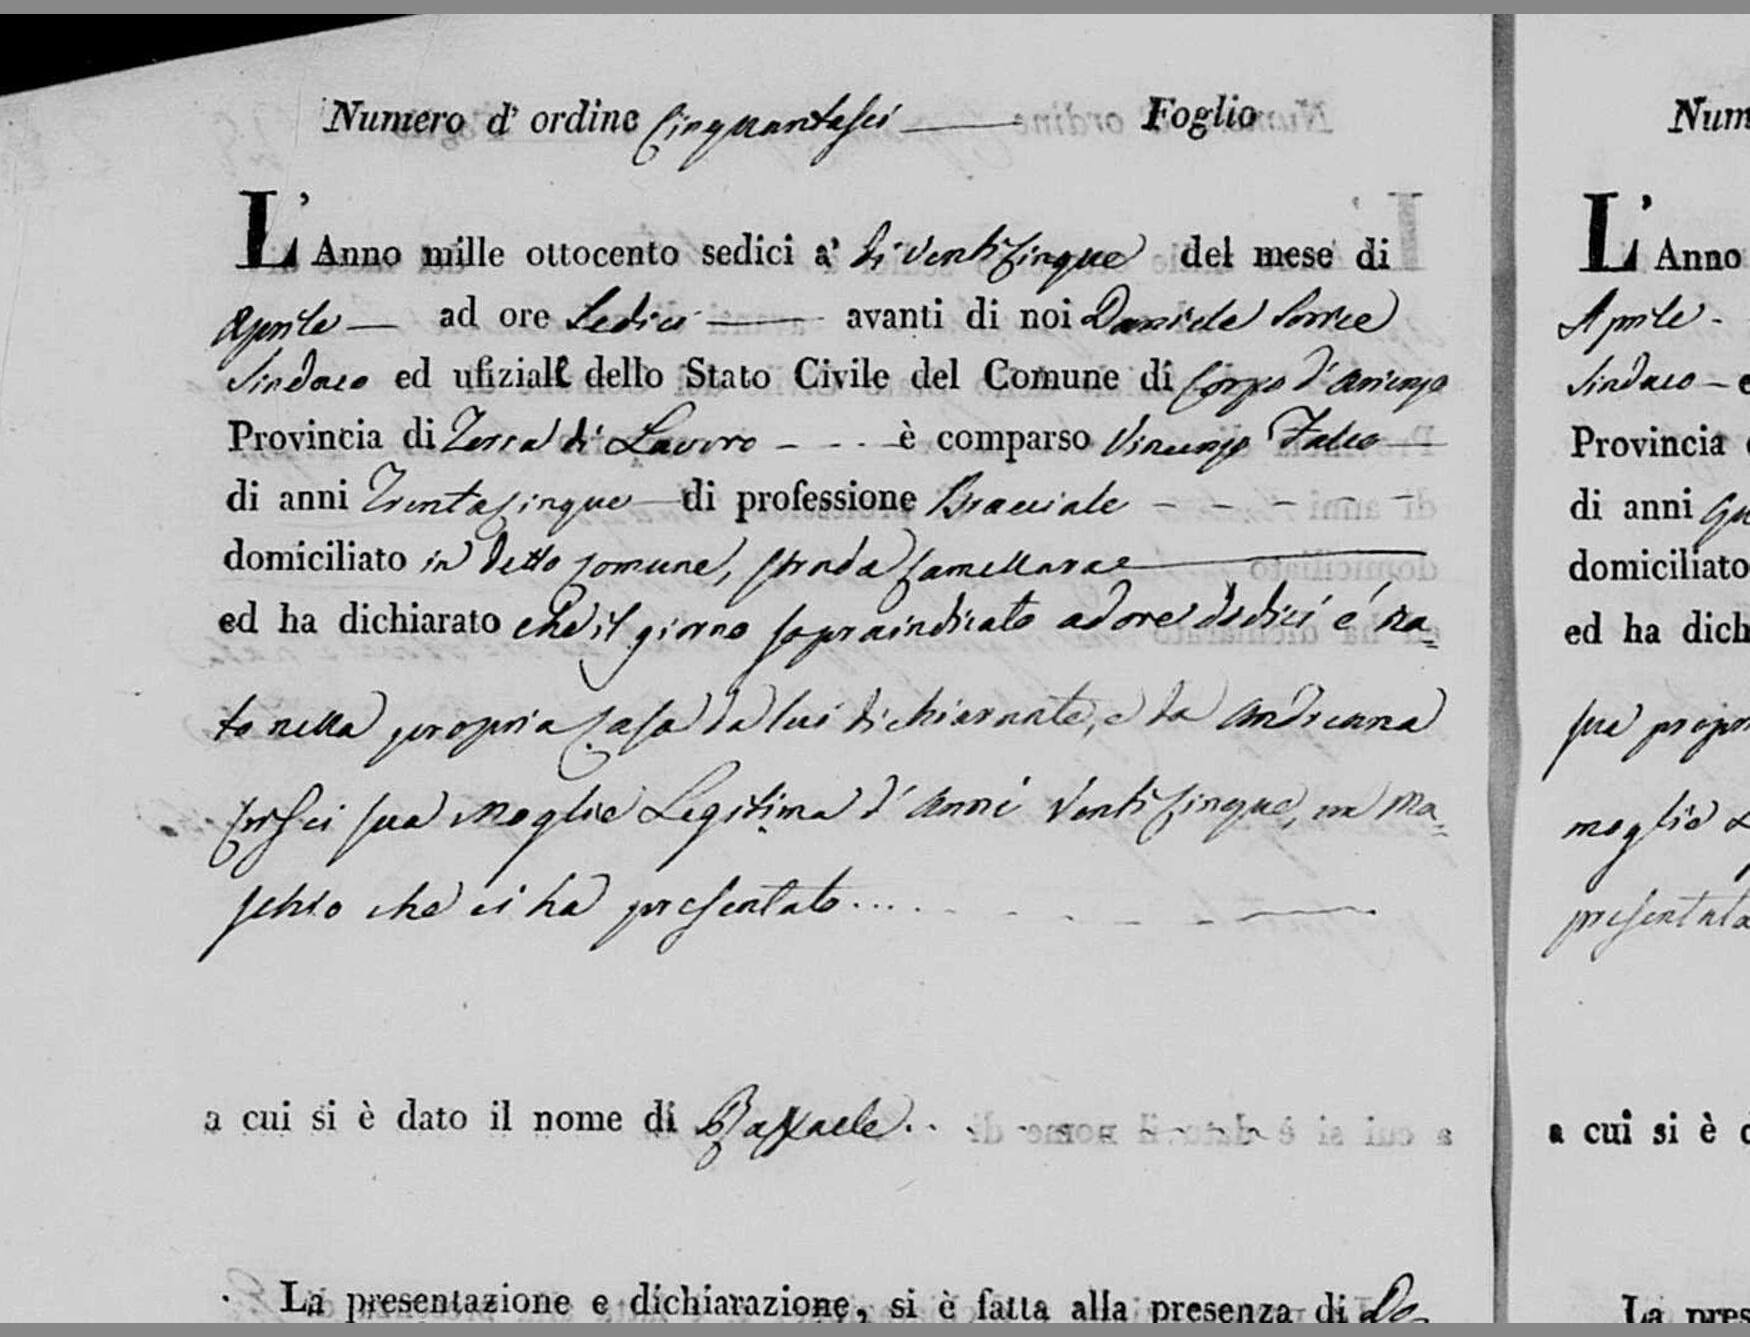 Numero d' ordine Cinquantasei Foglio
L' Anno mille ottocento sedici a' di venticinque del mese di
Aprile — ad ore Sedici — avanti di noi Daniele
Sindaco ed ufiziale dello Stato Civile del Comune di Corpo d'Arienzo
Provincia di Terra di Lavoro - - - è comparso Vincenzo Falco
di anni Trentacinque di professione Bracciale - - - -
domiciliato in detto comune, strada
ed ha dichiarato che il giorno sopraindicato ad ore dodici é na=
to nella propria casa da lui dichiarante, e da Andreana
sua moglie Legitima d'anni venticinque, un ma=
schio che ci ha presentato....
a cui si è dato il nome di Raffaele..
La presentazione e dichiarazione, si è fatta alla presenza di De=
Num
L' Anno
Aprile -
Sindaco - e
Provincia
di anni
domiciliato
ed ha dich
sua propr
moglie
presentata
a cui si è d
La pres